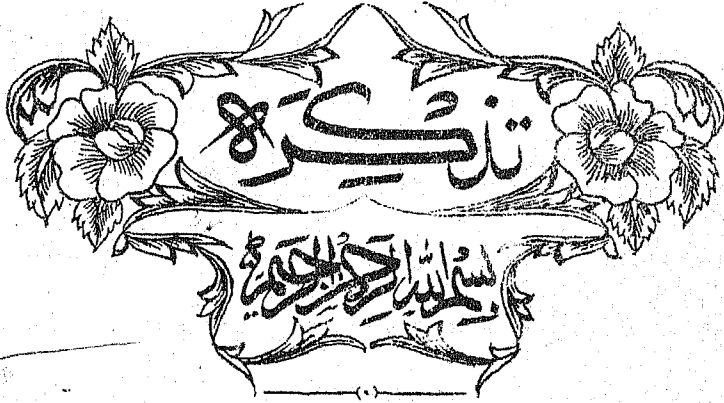 تذکرہ
بسم اللہ الرحمن الرحیم